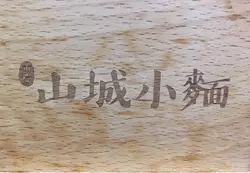 山城小麵